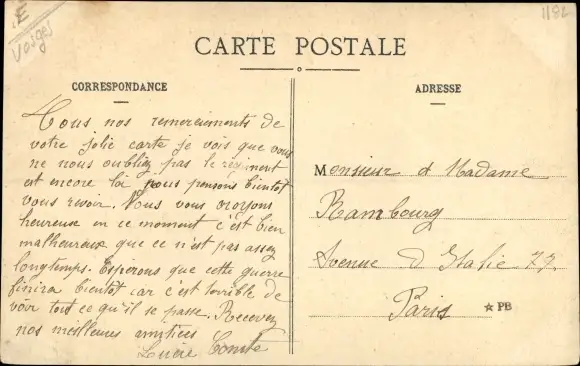 E
Vosges
1182
CARTE POSTALE
CORRESPONDANCE
Tous nos remerciements de
votre jolie carte je vois que vous
ne nous oubliez pas le régiment
est encore là nous pensons bientôt
vous revoir. Nous vous croyons
heureuse en ce moment c'est bien
malheureux que ce n'est pas assez
longtemps. Espérons que cette guerre
finira bientôt car c'est terrible de
voir tout ce qu'il se passe. Recevez
nos meilleures amitiés
Lucie Comte
ADRESSE
Monsieur et Madame
Rambourg
Avenue d'Italie 77
Paris
☆ PB